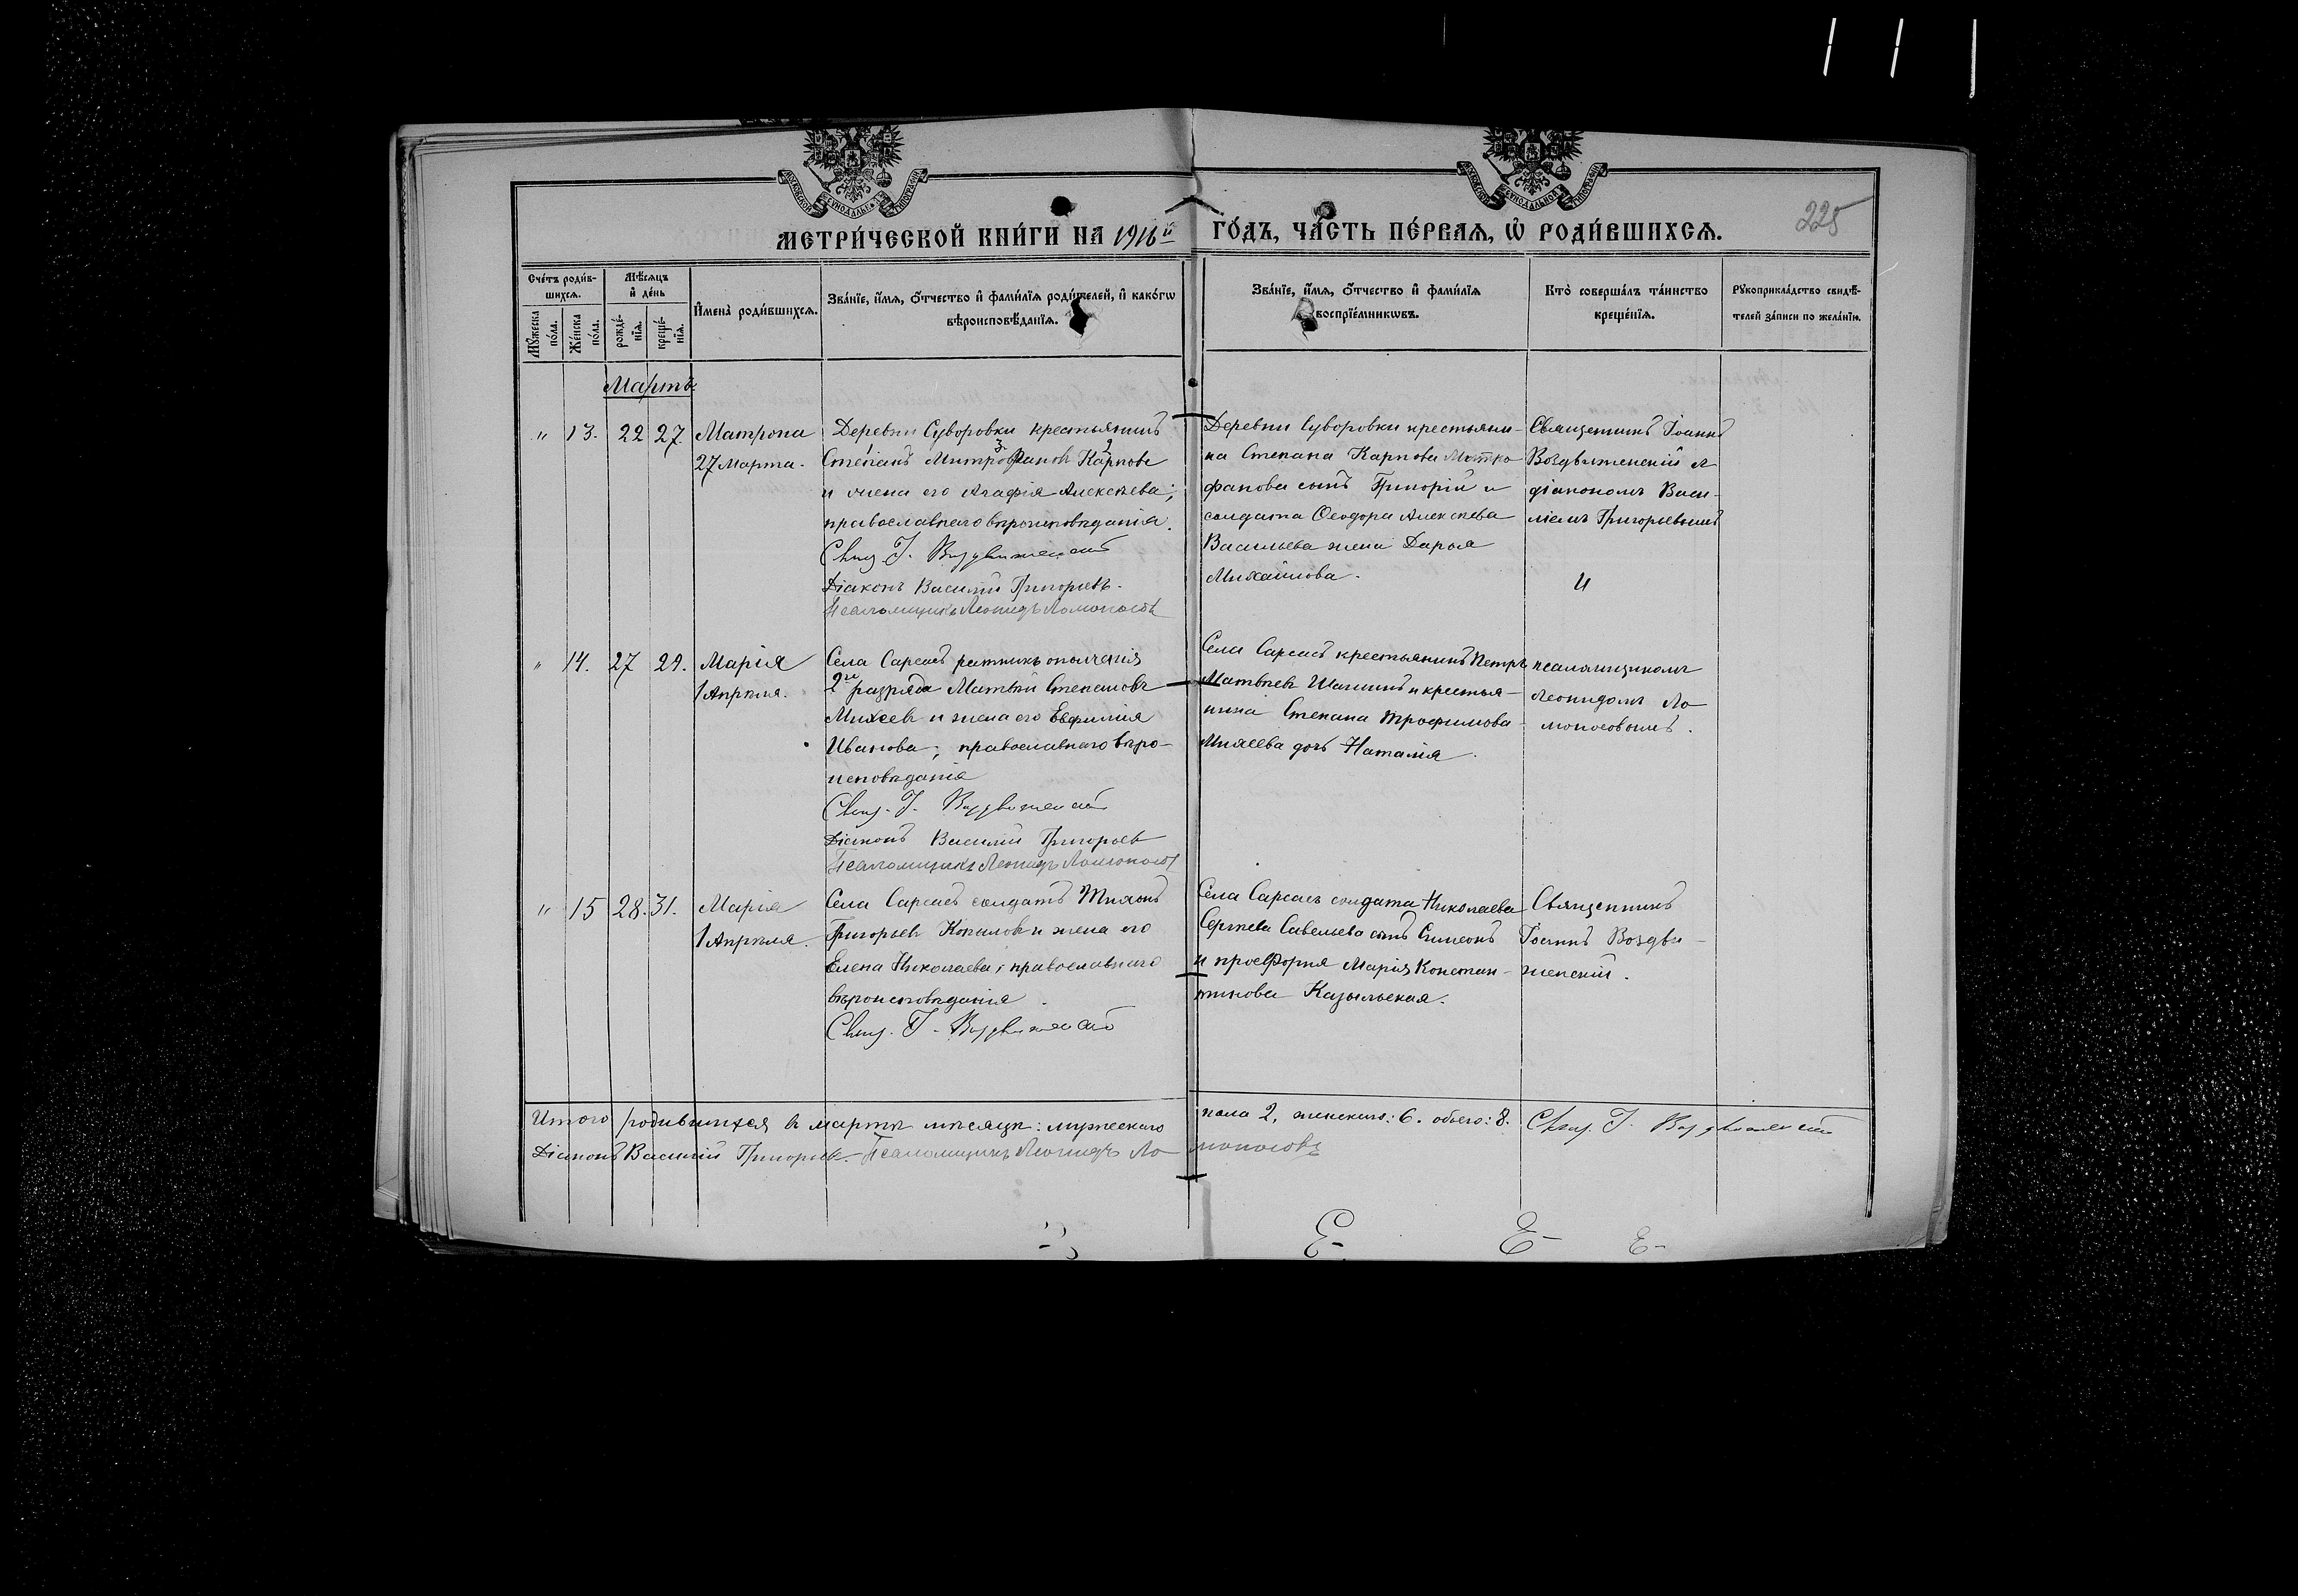 МОСКОВСКОЙ СѴНОДАЛЬН ТИПОГРАФІИ
МОСКОВСКОЙ СѴНОДАЛЬНОЙ ТИПОГРАФІИ
225
МЕТРИ́ЧЕСКОЙ КНИ́ГИ НА 1916й ГО́ДЪ, ЧА́СТЬ ПЕ́РВАѦ, Ѡ҆ РОДИ́ВШИХСѦ.
Сче́тъ роди́в-
шихсѧ.
Мѣ́сѧцъ
и҆ де́нь
Мꙋ́жеска
по́ла.
Же́нска
по́ла.
рожде́-
нїѧ.
креще́-
нїѧ.
И҆мена̀ роди́вшихсѧ.
Зва́нїе, и҆́мѧ, ѻ҆́тчество и҆ фами́лїѧ роди́телей, и҆ како́гѡ
вѣроисповѣ́данїѧ.
Зва́нїе, и҆́мѧ, ѻ҆́тчество и҆ фами́лїѧ
воспрїе́мникѡвъ.
Кто̀ соверша́лъ та́инство
креще́нїѧ.
Рꙋкоприкла́дство свидѣ́-
телей за́писи по жела́нїю.
Мартъ
" 13. 22 27 Матрона
27 Марта.
Деревни Суворовки крестьянинъ
1 3 2
Степанъ Митрофановъ Карповъ
и жена его Агафія Алексѣева;
православнаго вѣроисповѣданія.
Свящ. І. Воздвиженскій
Діаконъ Василій Григорьевъ.
Псаломщикъ Леонидъ Ломоносовъ
Деревни Суворовки крестьяни-
на Степана Карпова Митро
фанова сынъ Григорій и
солдата Ѳеодора Алексѣева
Васильева жена Дарья
Михайлова.
Священникъ Іоаннъ
Воздвиженскій съ
діакономъ Васи-
ліемъ Григорьевымъ
и
" 14. 27 29. Марія
1 Апрѣля.
Села Сарсасъ ратникъ ополченія
2го разряда Матвѣй Степановъ
Михеевъ и жена его Евфимія
Иванова; православнаго вѣро-
исповѣданія
Свящ. І. Воздвиженскій
Діаконъ Василій Григорьевъ
Псаломщикъ Леонидъ Ломоносовъ
Села Сарсасъ крестьянинъ Петръ
Матвѣевъ Шашинъ и крестья-
нина Степана Трофимова
Михеева дочь Наталія.
псаломщикомъ
Леонидомъ Ло
моносовымъ.
" 15 28. 31. Марія
1 Апрѣля.
Села Сарсасъ солдатъ Тихонъ
Григорьевъ Копыловъ и жена его
Елена Николаева; православнаго
вѣроисповѣданія.
Свящ. І. Воздвиженскій
Села Сарсасъ солдата Николаева
Сергѣева Савельева сынъ Симеонъ
и просфорня Марія Констан-
тинова Казыльская.
Священникъ
Іоаннъ Воздви-
женскій.
Итого родившихся въ мартѣ мѣсяцѣ: мужескаго пола 2, женскаго: 6. обоего: 8. Свящ. І. Воздвиженскій
Діаконъ Василій Григорьевъ. Псаломщикъ Леонидъ Ломоносовъ